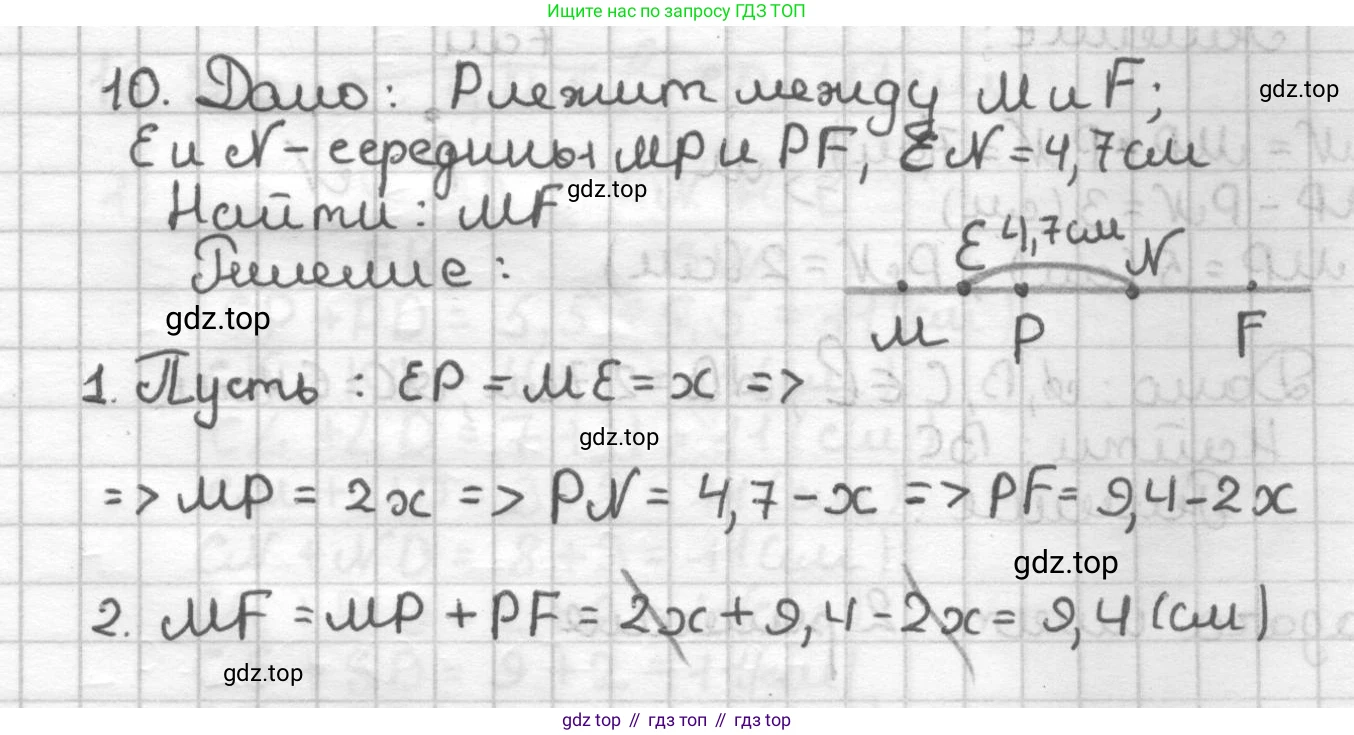 Ищите нас по запросу ГДЗ ТОП
10. Дано: P лежит между M и F;
gdz.top
E и N - середины MP и PF, EN = 4,7 см
gdz.top
Найти: MF
E 4,7 см N
Решение:
gdz.top
M P F
1. Пусть: EP = ME = x =>
gdz.top
=> MP = 2x => PN = 4,7 - x => PF = 9,4 - 2x
gdz.top
2. MF = MP + PF = 2x + 9,4 - 2x = 9,4 (см)
gdz.top
gdz top // гдз топ // gdz top